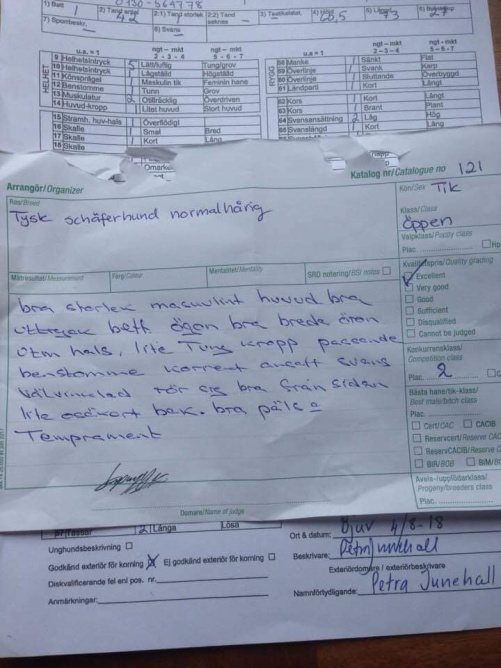 1) Bett 1
2) Tand antal 42
2:1) Tand storlek
2:2) Tand saknas
3) Testiklar
4) 60,5
5) 73
6) 27
7) Sportbeskr.
8) Svans
u.a. = 1 ngt – mkt 2 – 3 – 4 ngt – mkt 5 – 6 – 7
HELHET
9 Helhetsintryck 5 Lätt/luftig Tung/grov
10 Helhetsintryck 1 Lågställd Högställd
11 Könsprägel 1 Maskulin tik Feminin hane
12 Benstomme 1 Tunn Grov
13 Muskulatur 2 Otillräcklig Överdriven
14 Huvud-kropp 1 Litet huvud Stort huvud
15 Stramh. huv-hals 1 Överflödigt
16 Skalle 1 Smal Bred
17 Skalle 1 Kort Lång
18 Skalle
u.a. = 1 ngt – mkt 2 – 3 – 4 ngt – mkt 5 – 6 – 7
RYGG
58 Manke 1 Sänkt Flat
59 Överlinje 1 Svank Karp
60 Överlinje 1 Sluttande Överbyggd
61 Ländparti 1 Kort Långt
62 Kors 1 Kort Långt
63 Kors 1 Brant Plant
64 Svansansättning 2 Låg Hög
65 Svanslängd 1 Kort Lång
Katalog nr/Catalogue no 121
Arrangör/Organizer
Ras/Breed
Tysk schäferhund normalhårig
Kön/Sex Tik
Klass/Class
öppen
Valpklass/Puppy class
Plac.
Mätresultat/Measurement Färg/Colour Mentalitet/Mentality SRD notering/BSI notes
Kvalitetspris/Quality grading
Excellent
Very good
Good
Sufficient
Disqualified
Cannot be judged
bra storlek bra
bett. ögon bra breda öron
hals, lite Tung kropp passande
benstomme korrekt ansatt svans
rör sig bra från sidan
lite bak. bra päls o
Temprament
Konkurrensklass/
Competition class
Plac. 2
Bästa hane/tik-klass/
Best male/bitch class
Plac.
Cert/CAC CACIB
Reservcert/Reserve CAC
ReservCACIB/Reserve CACIB
BIR/BOB BIM/BOS
Avels-/uppfödarklass/
Progeny/breeders class
Plac.
Domare/Name of judge
57 Tassar 2 Långa Lösa
Unghundsbeskrivning
Godkänd exteriör för korning Ej godkänd exteriör för korning
Diskvalificerande fel enl pos. nr.
Anmärkningar:
Ort & datum: Djur 4/8-18
Beskrivare: Petra Junehall
Exteriördomare / exteriörbeskrivare
Namnförtydligande: Petra Junehall